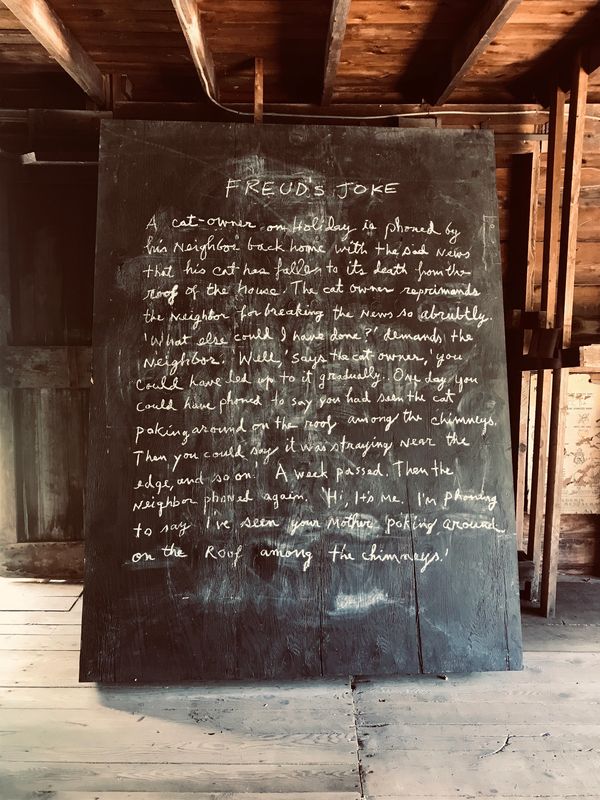 FREUD's JOKE
A cat-owner on Holiday is phoned by
his Neighbor back home with the sad News
that his cat has fallen to its death from the
roof of the house. The cat owner reprimands
the Neighbor for breaking the News so abrubtly.
'What else could I have done?' demands the
Neighbor. 'Well,' says the cat-owner, 'you
Could have led up to it gradually. One day you
Could have phoned to say you had seen the cat
poking around on the roof among the chimneys.
Then you could say it was straying Near the
edge, and so on.' A week passed. Then the
Neighbor phoned again. 'Hi, It's me. I'm phoning
to say I've seen your Mother poking around
on the Roof among the chimneys.'